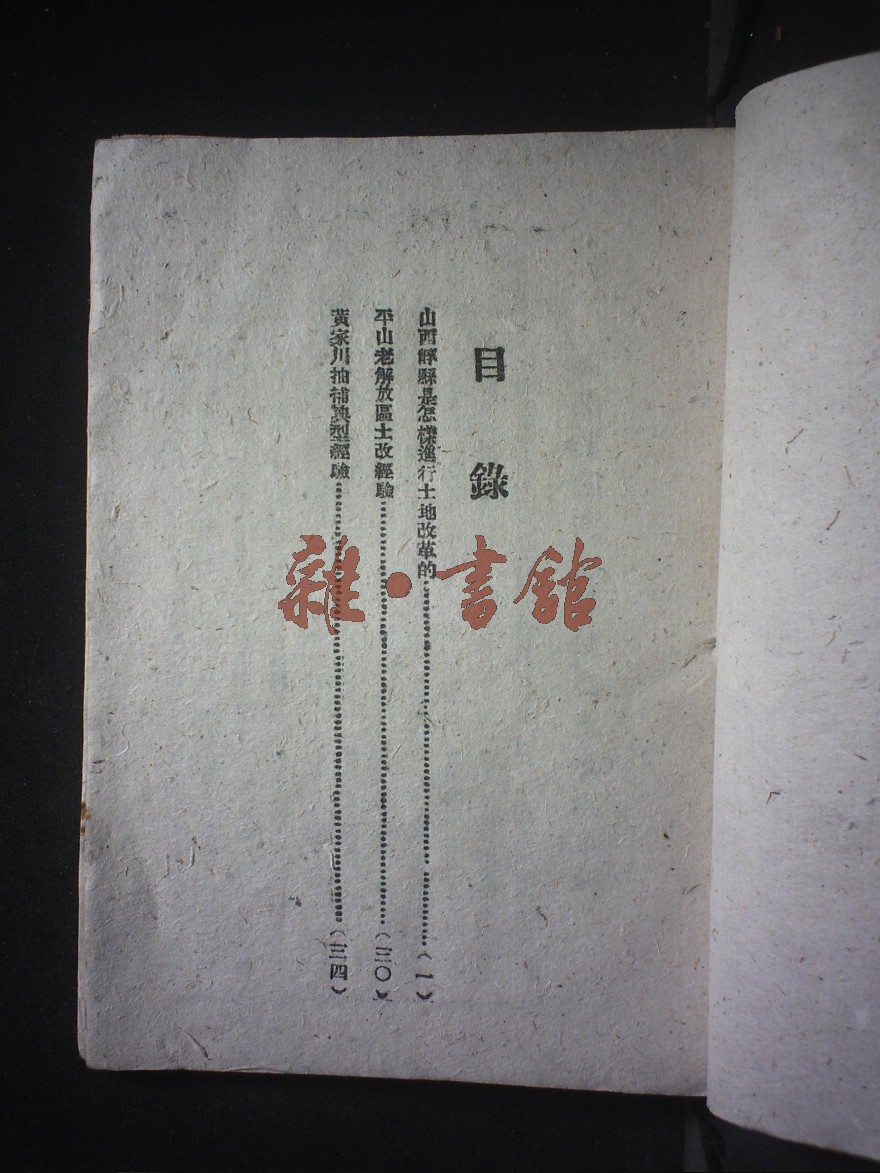 目錄
山西崞縣是怎樣進行土地改革的……(一)
平山老解放區土改經驗……(二〇)
黃家川抽補典型經驗……(三四)
雜·書館